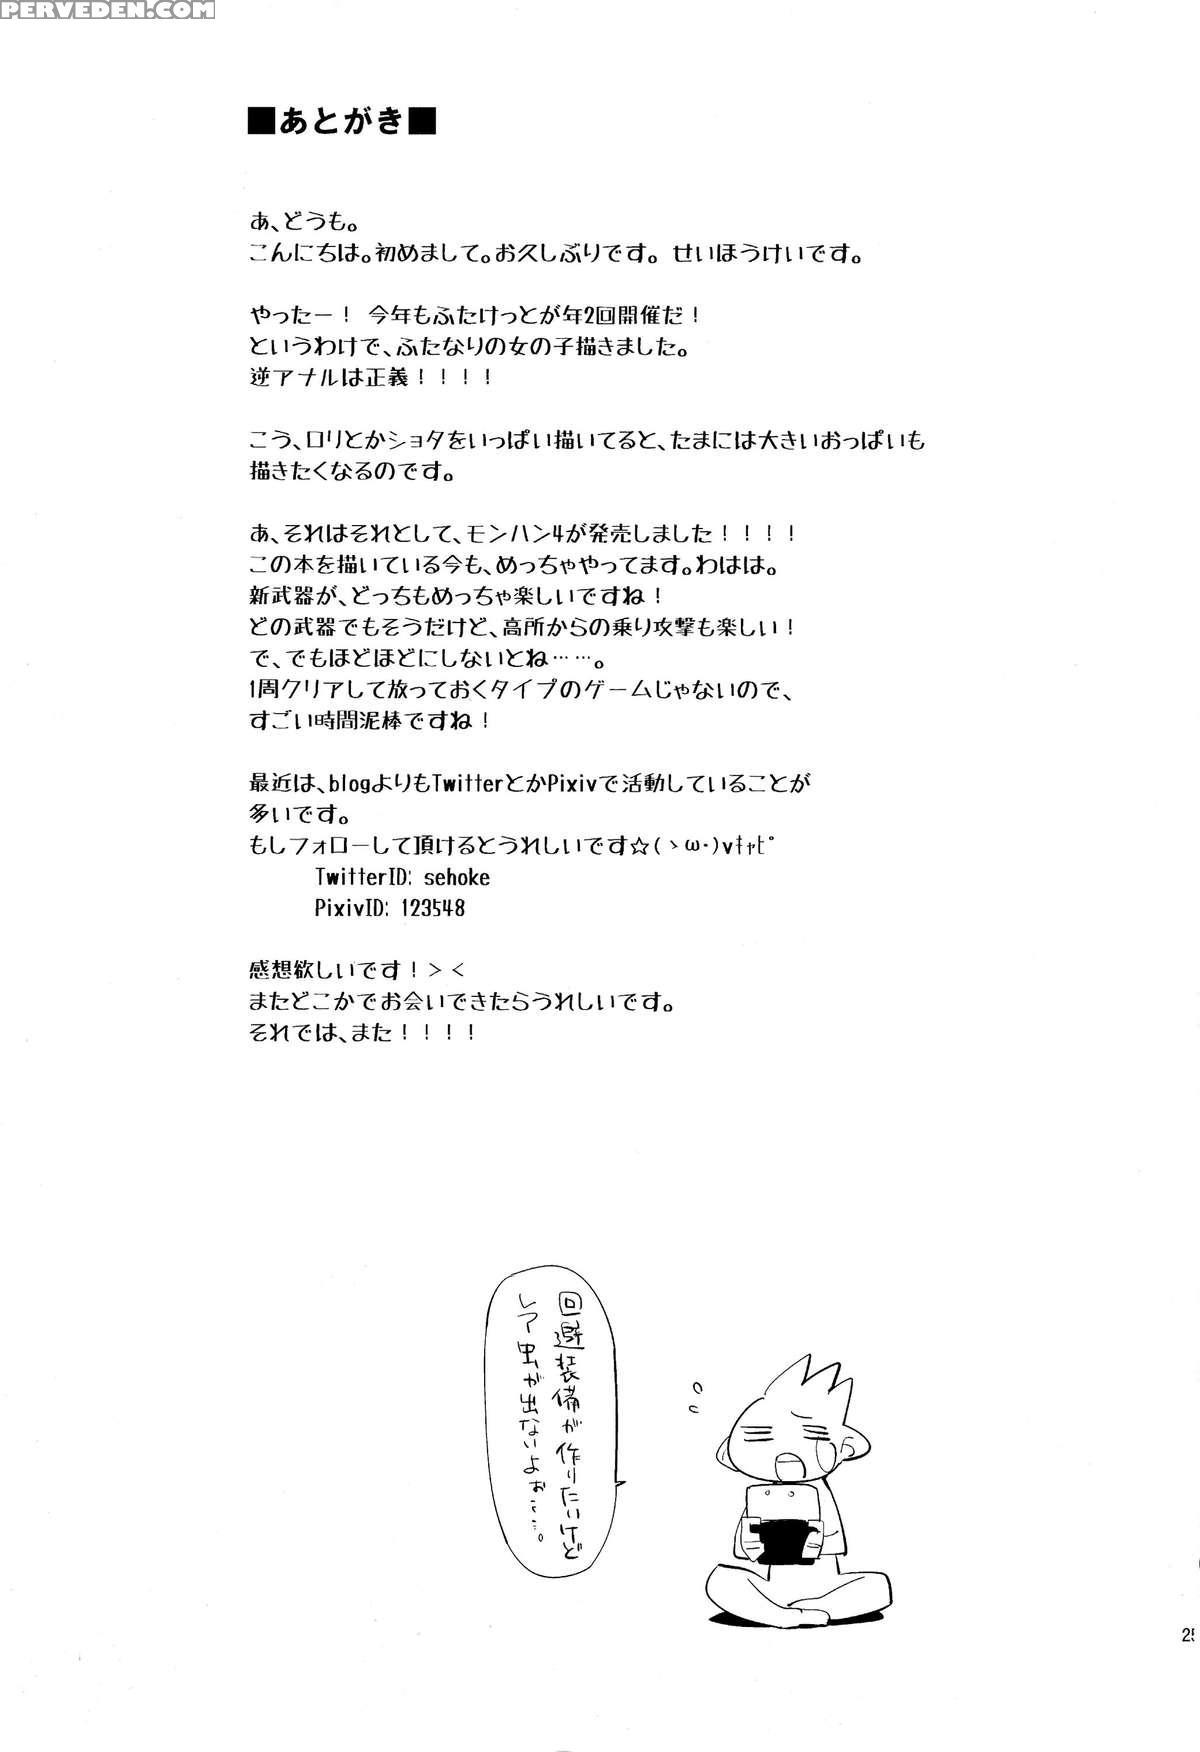 PERVEDEN.COM
■あとがき■
あ、どうも。
こんにちは。初めまして。お久しぶりです。せいほうけいです。
やったー！ 今年もふたけっとが年2回開催だ！
というわけで、ふたなりの女の子描きました。
逆アナルは正義！！！！
こう、ロリとかショタをいっぱい描いてると、たまには大きいおっぱいも
描きたくなるのです。
あ、それはそれとして、モンハン4が発売しました！！！！
この本を描いている今も、めっちゃやってます。わはは。
新武器が、どっちもめっちゃ楽しいですね！
どの武器でもそうだけど、高所からの乗り攻撃も楽しい！
で、でもほどほどにしないとね……。
1周クリアして放っておくタイプのゲームじゃないので、
すごい時間泥棒ですね！
最近は、blogよりもTwitterとかPixivで活動していることが
多いです。
もしフォローして頂けるとうれしいです☆(ゝω･)vｷｬﾋﾟ
TwitterID: sehoke
PixivID: 123548
感想欲しいです！＞＜
またどこかでお会いできたらうれしいです。
それでは、また！！！！
回避装備が作りたいけど
レア虫が出ないよぉ……。
25